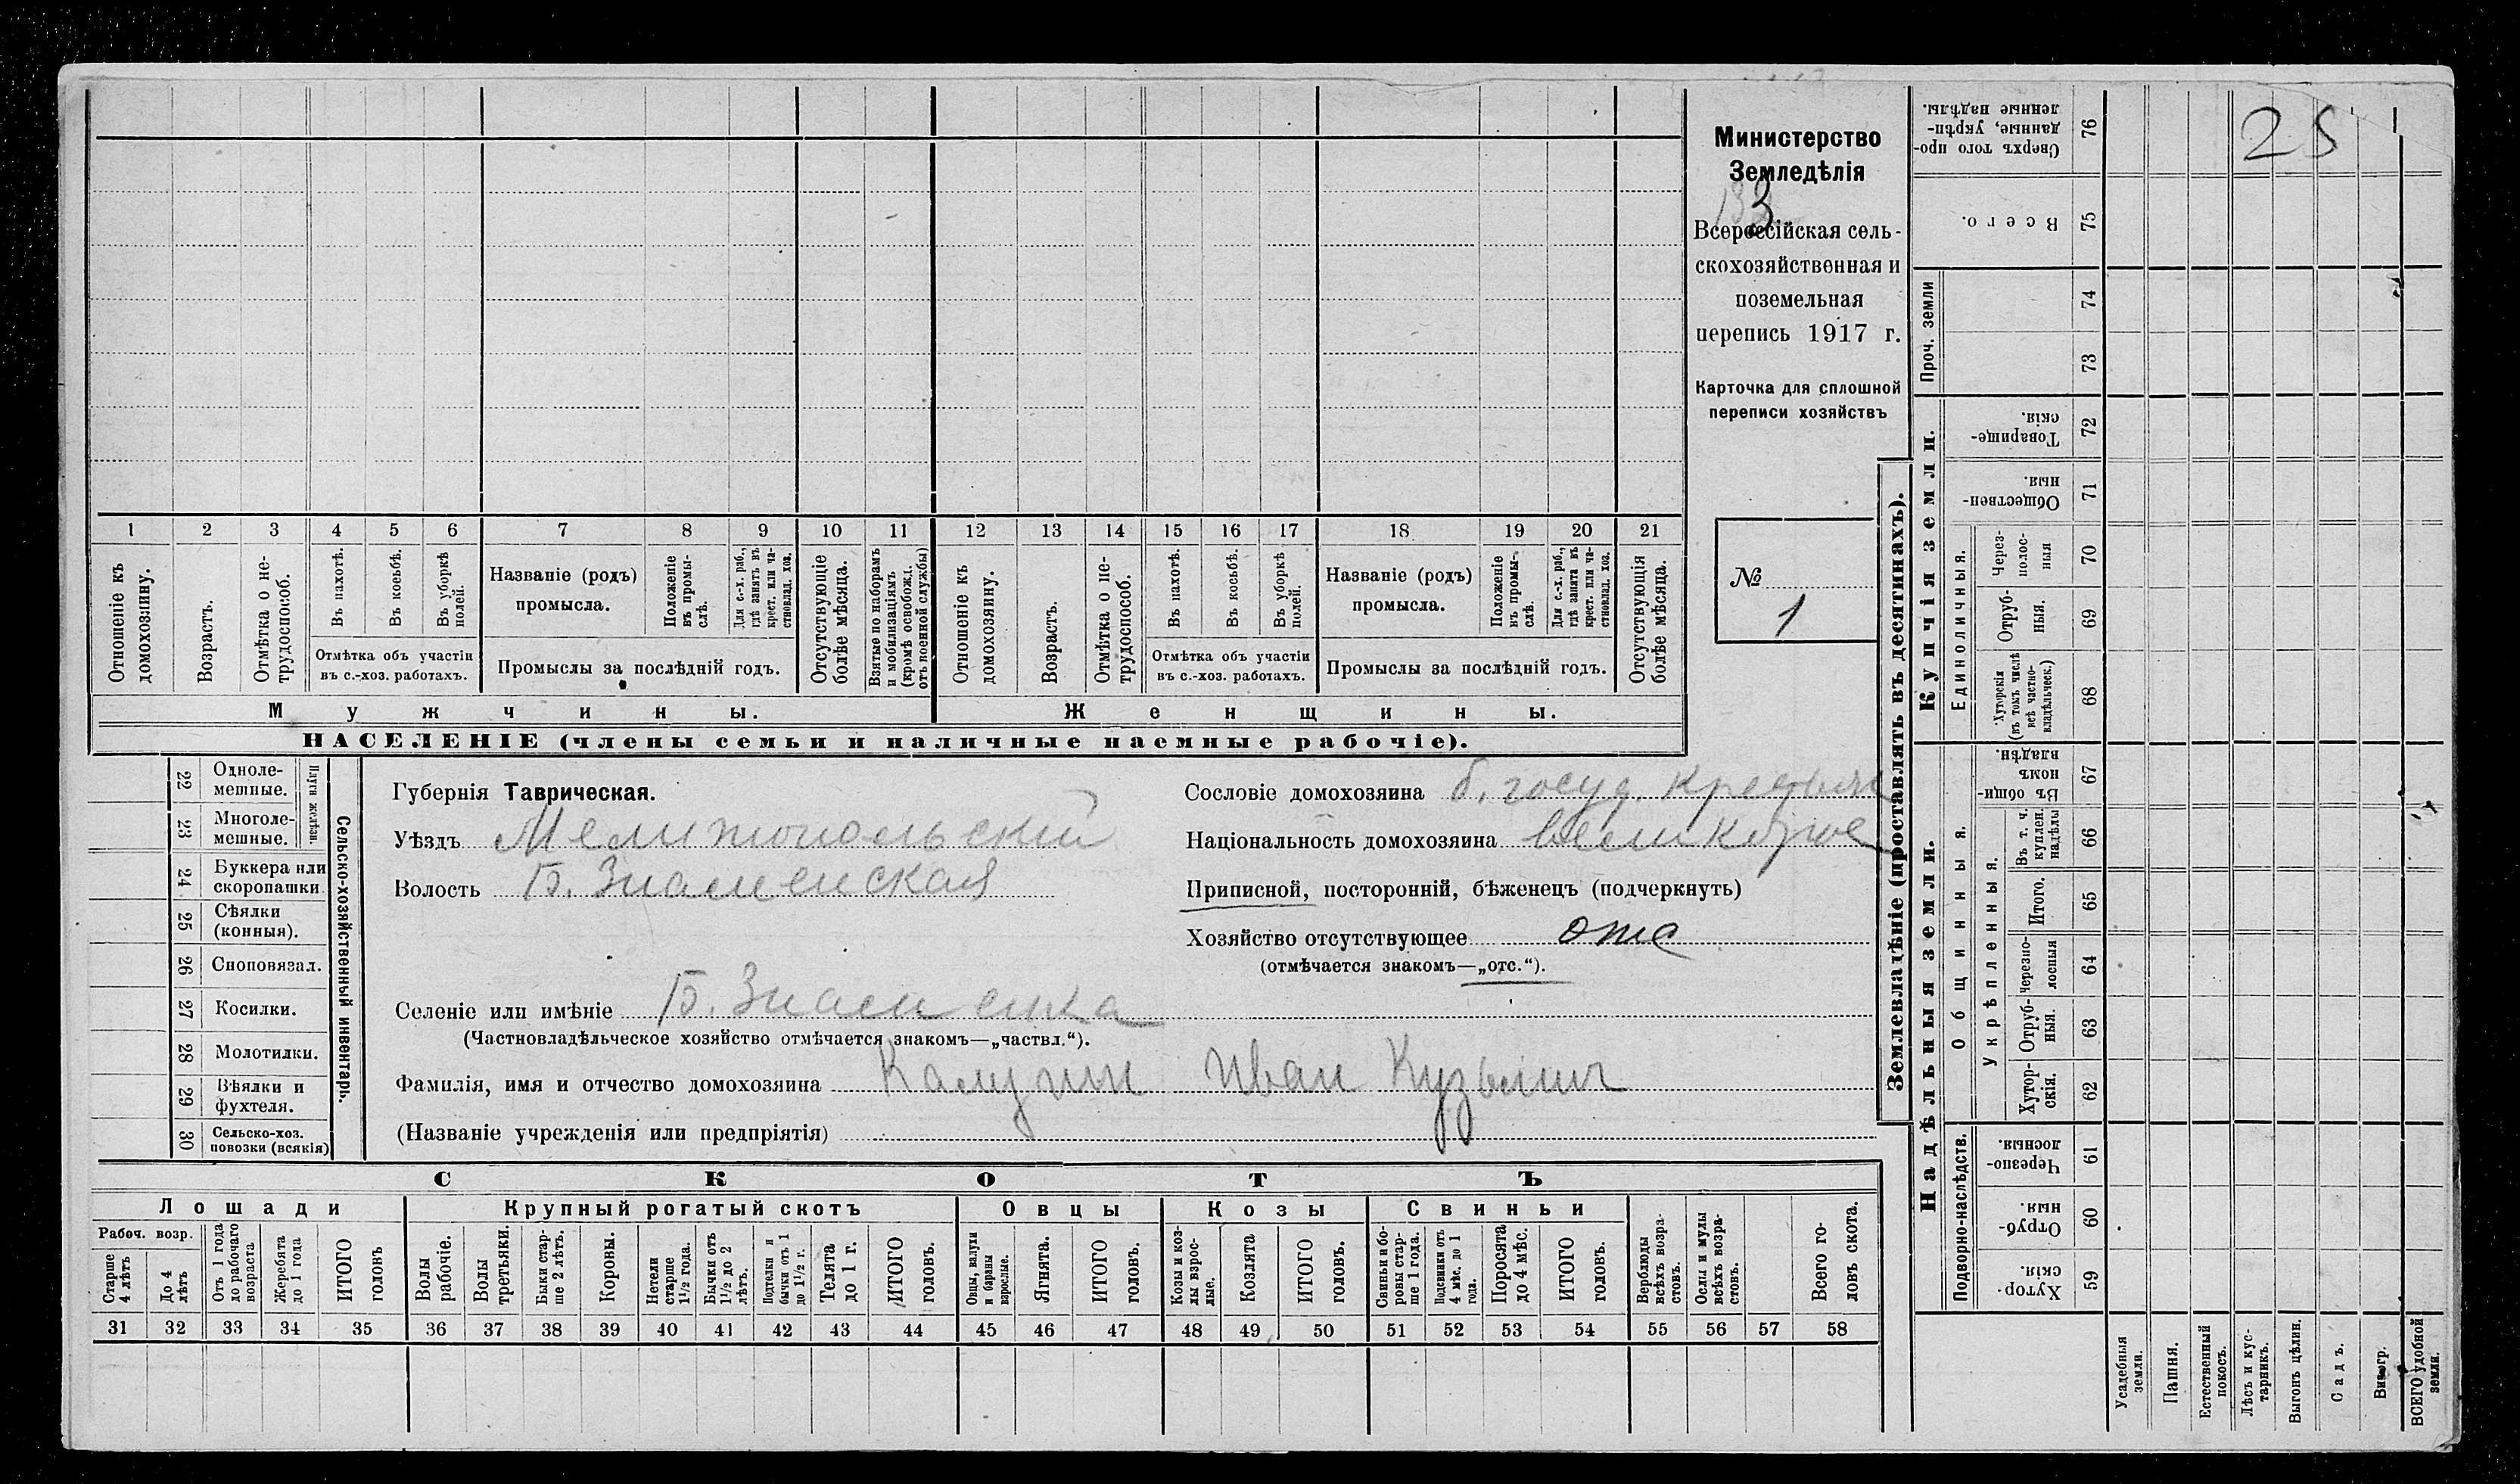 Министерство
Земледѣлія
3
Всероссійская сель-
скохозяйственная и
поземельная
перепись 1917 г.
Карточка для сплошной
переписи хозяйствъ
№
1
25
1 2 3 4 5 6 7 8 9 10 11 12 13 14 15 16 17 18 19 20 21
Отношеніе къ домохозяину.
Возрастъ.
Отмѣтка о не-трудоспособ.
Въ пахотѣ.
Въ косьбѣ.
Въ уборкѣ полей.
Отмѣтка объ участіи
въ с.-хоз. работахъ.
Названіе (родъ)
промысла.
Положеніе въ промы-слѣ.
Для с.-х. раб., гдѣ занятъ въ крест. или ча-стновлад. хоз.
Промыслы за послѣдній годъ.
Отсутствующіе болѣе мѣсяца.
Взятые по наборамъ и мобилизаціямъ (кромѣ освобожд. отъ военной службы)
Отношеніе къ домохозяину.
Возрастъ.
Отмѣтка о не-трудоспособ.
Въ пахотѣ.
Въ косьбѣ.
Въ уборкѣ полей.
Отмѣтка объ участіи
въ с.-хоз. работахъ.
Названіе (родъ)
промысла.
Положеніе въ промы-слѣ.
Для с.-х. раб., гдѣ занята въ крест. или ча-стновлад. хоз.
Промыслы за послѣдній годъ.
Отсутствующія болѣе мѣсяца.
Мужчины.
Женщины.
НАСЕЛЕНІЕ (члены семьи и наличные наемные рабочіе).
Сельско-хозяйственный инвентарь.
Плуги желѣзн.
22 Одноле-мешные.
23 Многоле-мешные.
24 Буккера или скоропашки
25 Сѣялки (конныя).
26 Сноповязал.
27 Косилки.
28 Молотилки.
29 Вѣялки и фухтеля.
30 Сельско-хоз. повозки (всякія)
Губернія Таврическая.
Уѣздъ Мелитопольскій
Волость Б. Знаменская
Сословіе домохозяина б. госуд. крестьян
Національность домохозяина
Приписной, посторонній, бѣженецъ (подчеркнуть)
Хозяйство отсутствующее отс
(отмѣчается знакомъ—„отс.“).
Селеніе или имѣніе Б. Знаменка
(Частновладѣльческое хозяйство отмѣчается знакомъ—„частвл.“).
Фамилія, имя и отчество домохозяина Калугин Иван Кузьмич
(Названіе учрежденія или предпріятія)
СКОТЪ
Лошади
Крупный рогатый скотъ
Овцы
Козы
Свиньи
Рабоч. возр.
Старше 4 лѣтъ
До 4 лѣтъ
Отъ 1 года до рабочаго возраста
Жеребята до 1 года
ИТОГО головъ
Волы рабочіе.
Волы третьяки.
Быки стар-ше 2 лѣтъ.
Коровы.
Нетели старше 1½ года.
Бычки отъ 1½ до 2 лѣтъ.
Подтелки и бычки отъ 1 до 1½ г.
Телята до 1 г.
ИТОГО головъ.
Овцы, валухи и бараны взрослые.
Ягнята.
ИТОГО головъ.
Козы и коз-лы взрос-лые.
Козлята
ИТОГО головъ.
Свиньи и бо-ровы стар-ше 1 года.
Подсвинки отъ 4 мѣс. до 1 года.
Поросята до 4 мѣс.
ИТОГО головъ.
Верблюды всѣхъ возра-стовъ.
Ослы и мулы всѣхъ возра-стовъ.
Всего го-ловъ скота.
31 32 33 34 35 36 37 38 39 40 41 42 43 44 45 46 47 48 49 50 51 52 53 54 55 56 57 58
Землевладѣніе (проставлять въ десятинахъ).
Купчія земли.
Надѣльныя земли.
Проч. земли
Единоличныя.
Общинныя.
Укрѣпленныя.
Подворно-наслѣдств.
76 Сверхъ того про-данные, укрѣп-ленные надѣлы.
75 Всего.
74
73
72 Товарище-скія.
71 Обществен-ныя.
70 Через-полос-ныя
69 Отруб-ныя.
68 Хуторскія (въ томъ числѣ всѣ частно-владѣльческ.)
67 Въ общи-номъ владѣн.
66 Въ т. ч. куплен. надѣлы
65 Итого.
64 Черезпо-лосныя
63 Отруб-ныя.
62 Хутор-скія.
61 Черезпо-лосныя.
60 Отруб-ныя.
59 Хутор-скія.
Усадебныя земли.
Пашня.
Естественный покосъ.
Лѣсъ и кус-тарникъ.
Выгонъ цѣлин.
Садъ.
Виногр.
ВСЕГО удобной земли.